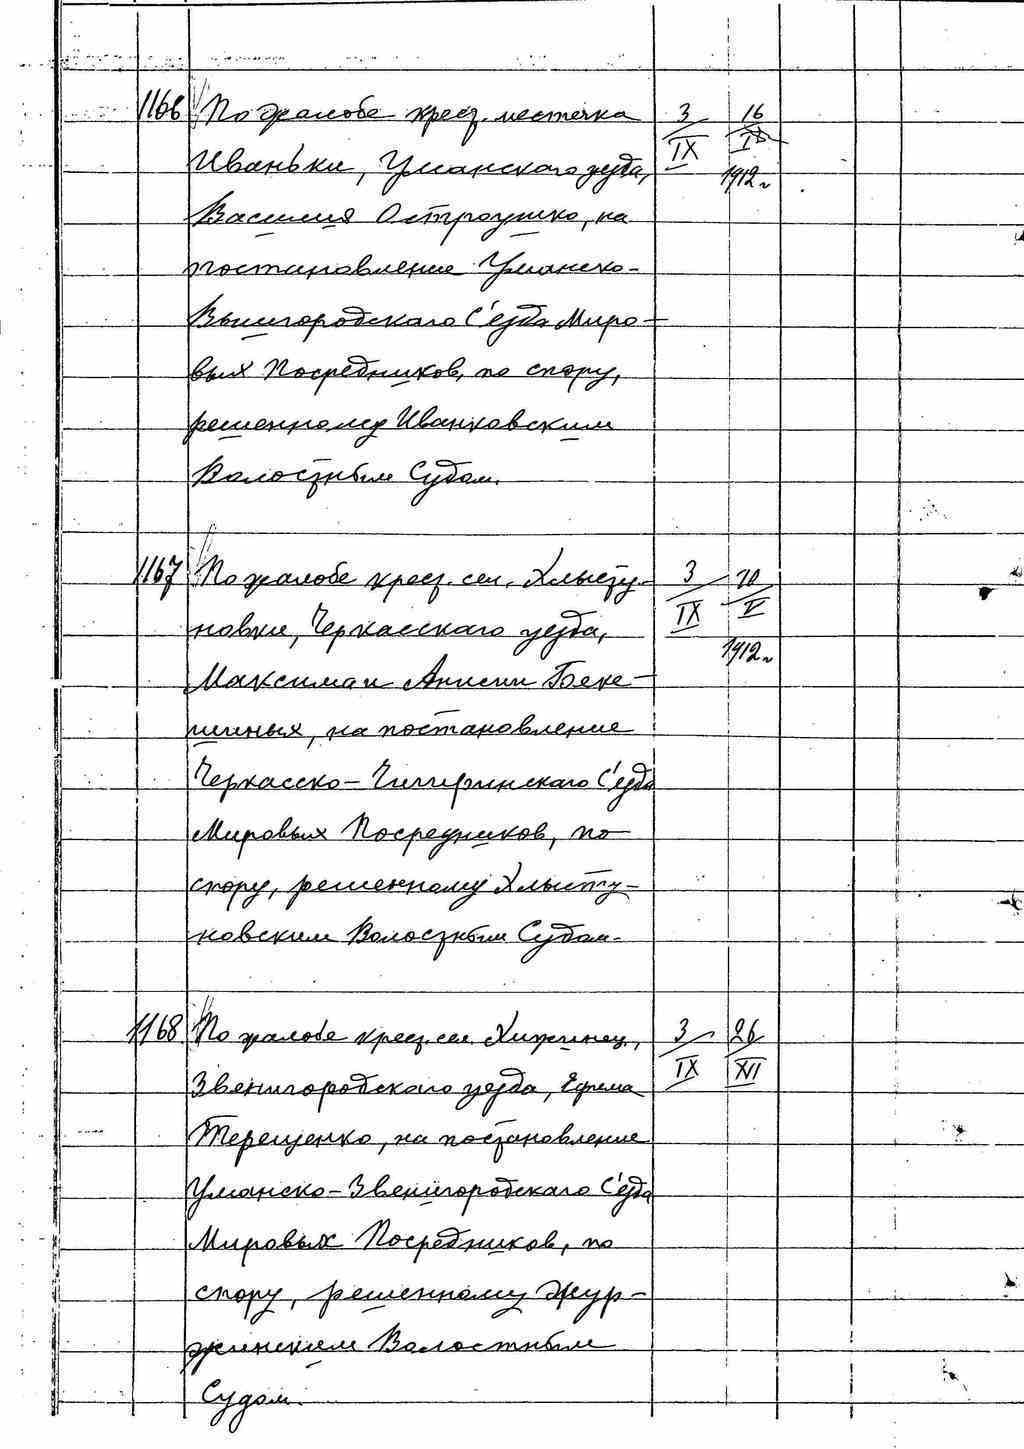 1166 По жалобе крест. местечка 3/IX 16/IX 1912 г
Иваньки, Уманскаго уезда,
Василия Остроушко, на
постановление Уманско-
Вышгородскаго С'езда Миро-
вых Посредников, по спору,
решенному Иванковским
Волостным Судом.
1167 По жалобе крест. сел. Хлысту- 3/IX 10/V 1912 г
новки, Черкасскаго уезда,
Максима и Анисии Боке-
шиных, на постановление
Черкасско-Чигиринскаго С'езда
Мировых Посредников, по
спору, решенному Хлысту-
новским Волостным Судом.
1168 По жалобе крест. сел. Хижинец, 3/IX 26/XII
Звенигородскаго уезда, Ефрема
Терещенко, на постановление
Уманско-Звенигородскаго С'езда
Мировых Посредников, по
спору, решенному Жур-
жинским Волостным
Судом.